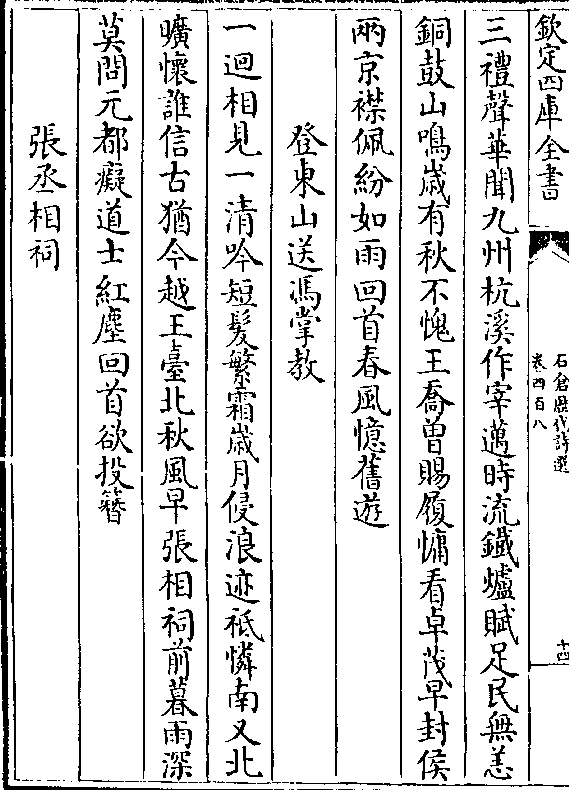 欽定四庫全書
石倉歷代詩選
卷四百八
十四
三禮聲華聞九州杭溪作宰邁時流鐵爐賦足民無恙
銅鼓山鳴歲有秋不愧王喬曽賜履慵看卓茂早封侯
兩京襟佩紛如雨回首春風憶舊遊
登東山送馮掌教
一迴相見一清吟短髮繁霜歲月侵浪迹祗憐南又北
曠懷誰信古猶今越王臺北秋風早張相祠前暮雨深
莫問元都癡道士紅塵回首欲投簪
張丞相祠